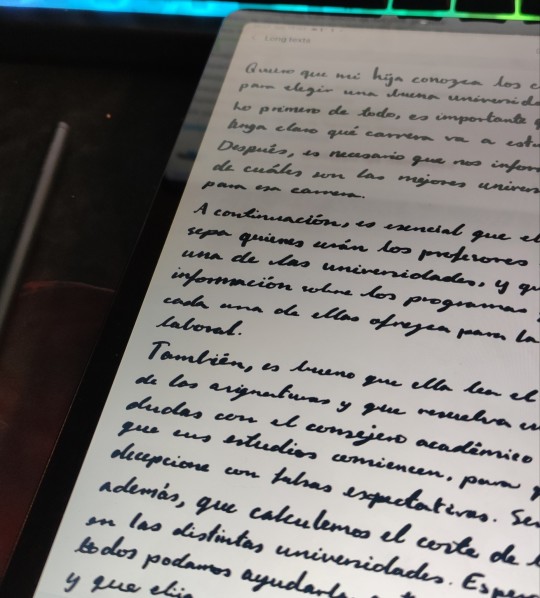 Long texts
Quiero que mi hija conozca los
para elegir una buena universid
lo primero de todo, es importante
tenga claro qué carrera va a estu
Después, es necesario que nos infor
de cuáles son las mejores univers
para esa carrera.
A continuación, es esencial que el
sepa quienes serán los profesores
una de las universidades, y qu
información sobre los programas
cada una de ellas ofrezca para la
laboral.
También, es bueno que ella lea el
de las asignaturas y que resuelva
dudas con el consejero académico
que sus estudios comiencen, para
decepcione con falsas expectativas. Se
además, que calculemos el coste de
en las distintas universidades. Espe
todos podamos ayudarla
y que elij